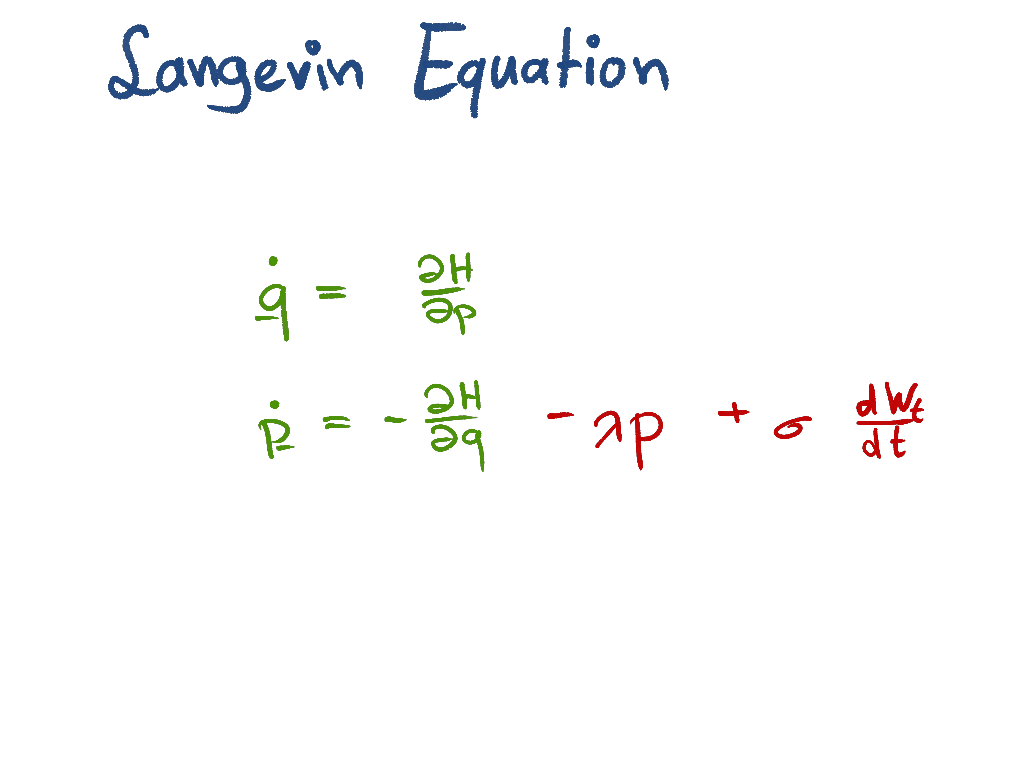 Langevin Equation
q̇ = ∂H/∂p
ṗ = - ∂H/∂q - λp + σ dWₜ/dt